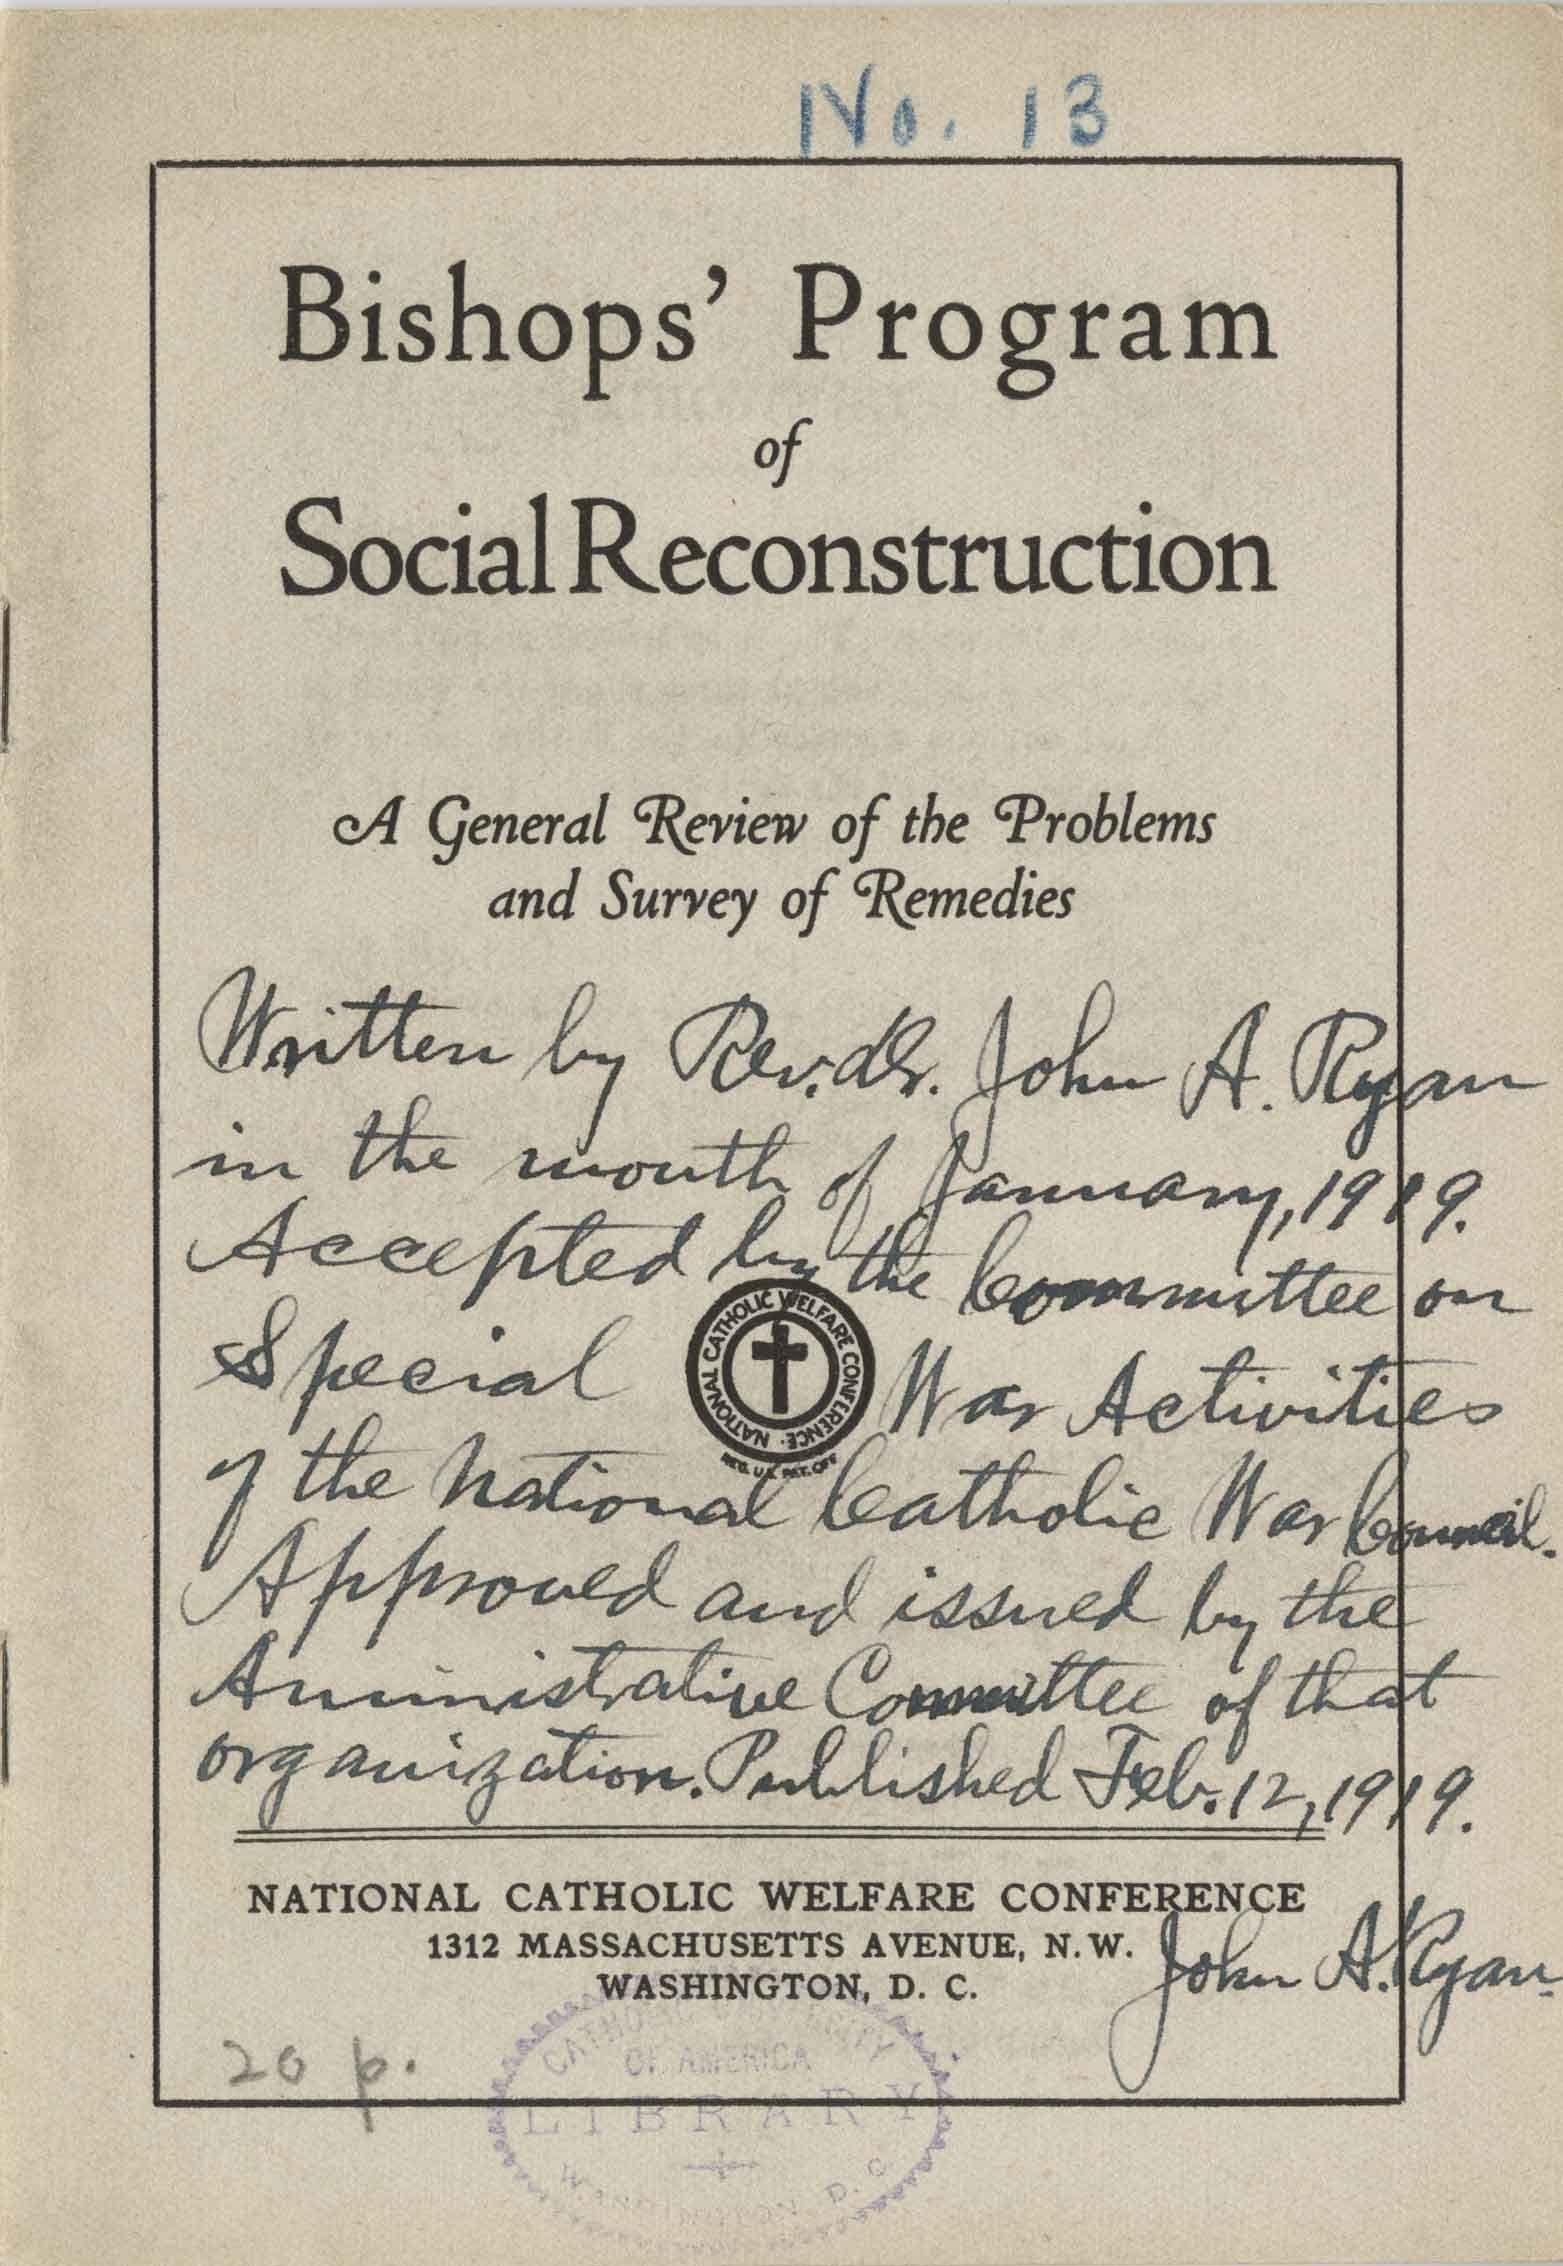 No. 13
Bishops’ Program
of
Social Reconstruction
A General Review of the Problems
and Survey of Remedies
Written by Rev. Dr. John A. Ryan
in the month of January, 1919.
Accepted by the Committee on
Special War Activities
NATIONAL CATHOLIC WELFARE CONFERENCE ·
REG. U.S. PAT. OFF.
of the National Catholic War Council.
Approved and issued by the
Aministrative Committee of that
organization. Published Feb. 12, 1919.
NATIONAL CATHOLIC WELFARE CONFERENCE
1312 MASSACHUSETTS AVENUE, N. W.
WASHINGTON, D. C.
John A. Ryan.
20 p.
CATHOLIC UNIVERSITY
OF AMERICA
LIBRARY
WASHINGTON, D. C.